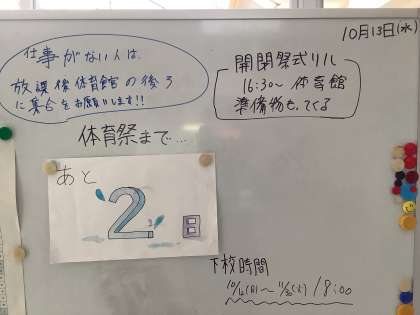 10月13日(水)
仕事がない人は、
放課後体育館の後ろ
に集合をお願いします!!
開閉祭式リハ
16:30〜 体育館
準備物もってくる
体育祭まで…
あと
2日
下校時間
10/6(月)〜11/30(火) 18:00